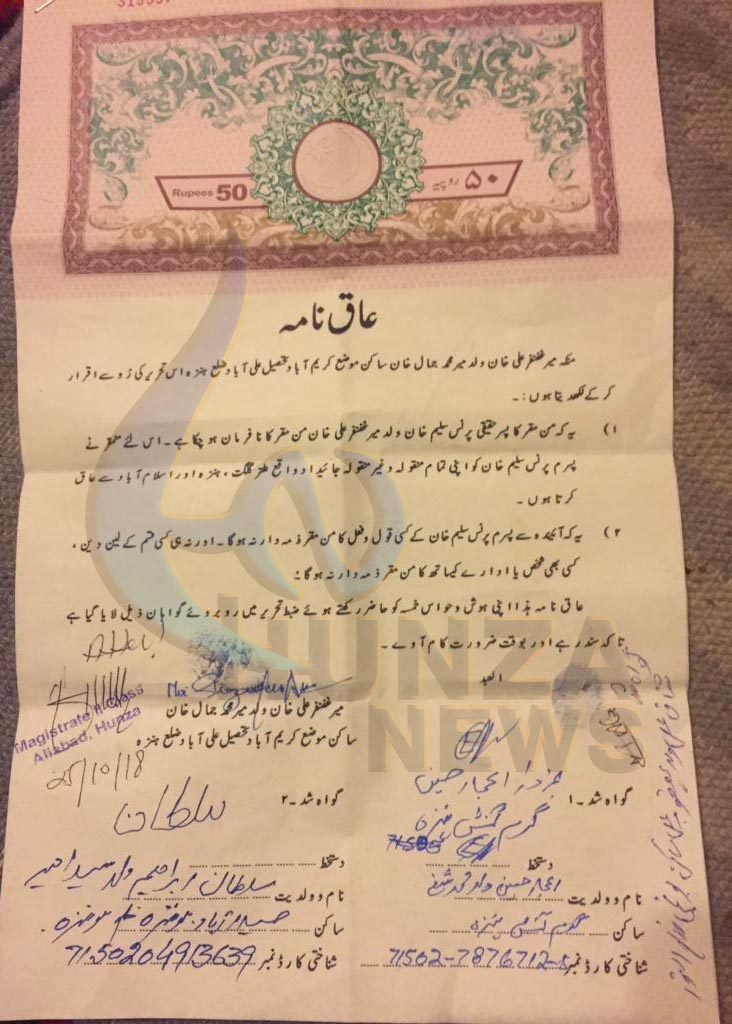 Rupees 50
۵۰ روپیہ
عاق نامہ
منکہ میر غضنفر علی خان ولد میر محمد جمال خان ساکن موضع کریم آباد تحصیل علی آباد ضلع ہنزہ اس تحریر کی رُو سے اقرار
کر کے لکھ دیتا ہوں:۔
۱) یہ کہ من مقر کا پسر حقیقی پرنس سلیم خان ولد میر غضنفر علی خان من مقر کا نافرمان ہو چکا ہے۔ اس لئے من مقر نے
پسرم پرنس سلیم خان کو اپنی تمام منقولہ و غیر منقولہ جائیداد واقع گلگت، ہنزہ اور اسلام آباد سے عاق
کرتا ہوں۔
۲) یہ کہ آئندہ سے پسرم پرنس سلیم خان کے کسی قول و فعل کا من مقر ذمہ دار نہ ہوگا۔ اور نہ ہی کسی قسم کے لین دین،
کسی بھی شخص یا ادارے کیساتھ کا من مقر ذمہ دار نہ ہوگا:
عاق نامہ ہذا اپنی ہوش و حواس خمسہ کو حاضر رکھتے ہوئے ضبط تحریر میں روبروئے گواہان ذیل لایا گیا ہے
تاکہ سند رہے اور بوقت ضرورت کام آوے۔
العبد
میر غضنفر علی خان ولد میر محمد جمال خان
ساکن موضع کریم آباد تحصیل علی آباد ضلع ہنزہ
Magistrate II Class
Aliabad, Hunza
25/10/18
HUNZA
NEWS
گواہ شد۔۱
اعجاز حسین
دستخط
نام و ولدیت اعجاز حسین ولد محمد شفیع
ساکن ہنزہ
شناختی کارڈ نمبر 71502-7876712-
گواہ شد۔۲
سلطان
دستخط
نام و ولدیت سلطان ابراہیم ولد سید امیر
ساکن
شناختی کارڈ نمبر 7150204913639